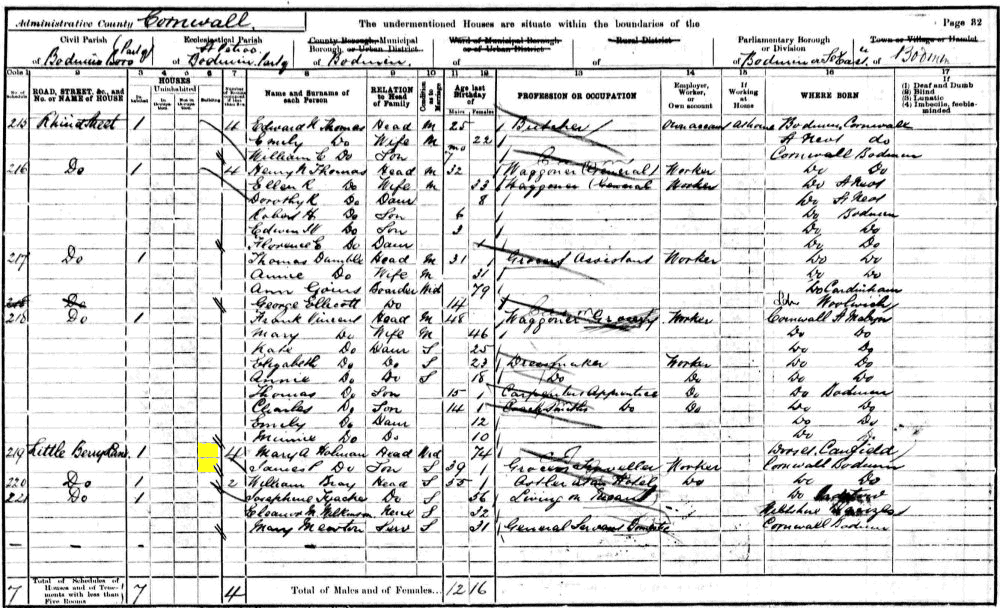 Administrative County Cornwall
The undermentioned Houses are situate within the boundaries of the
Page 32
Civil Parish
of Bodmin Boro (Part of)
Ecclesiastical Parish
of Bodmin Part of
County Borough, Municipal Borough, or Urban District
of Bodmin
Ward of Municipal Borough or of Urban District
of
Rural District
of
Parliamentary Borough or Division
of Bodmin or S East
Town or Village or Hamlet
of Bodmin
Cols 1 2 3 4 5 6 7 8 9 10 11 12 13 14 15 16 17
No. of Schedule
ROAD, STREET, &c., and No. or NAME of HOUSE
HOUSES
Inhabited
Uninhabited
In Occupation
Not in Occupation
Building
Name and Surname of each Person
RELATION to Head of Family
Condition as to Marriage
Age last Birthday of
Males Females
PROFESSION OR OCCUPATION
Employer, Worker, or Own account
If Working at Home
WHERE BORN
(1) Deaf and Dumb
(2) Blind
(3) Lunatic
(4) Imbecile, feeble-minded
215 Rhind Street 1 4 Edward K Thomas Head M 25 Butcher Own account At home Bodmin, Cornwall
Emily Do Wife M 22 St Neot do
William E Do Son 7 mo Cornwall Bodmin
216 Do 1 4 Henry N Thomas Head M 32 Waggoner (General) Worker Do Do
Ellen R Do Wife M 33 Waggoner General Worker Do St Neot
Dorothy R Do Daur 8 Do St Neot
Robert H. Do Son 6 Do Bodmin
Edwin W Do Son 3 Do Do
Florence E Do Daur 1 Do Do
217 Do 1 Thomas Dumble Head M 31 Grocers Assistant Worker Do Do
Annie Do Wife M 31 Do Do
Ann Goins Boarder Wid 79 Do Cardinham
George Ellicott Do 14 Woolwich
218 Do 1 Frank Vincent Head M 48 Waggoner Grocery Worker Cornwall St Mabyn
Mary Do Wife M 46 Do Do
Kate Do Daur S 25 Do Do
Elizabeth Do Do S 23 Dressmaker Worker Do Do
Annie Do Do S 18 Do Do Do Do
Thomas Do Son 15 Carpenters Apprentice Do Do Bodmin
Charles Do Son 14 Coach Smiths Do Do Do Do
Emily Do Daur 12 Do Do
Minnie Do Do 10 Do Do
219 Little Berry Lane 1 4 Mary A Holman Head Wid 74 Dorset
James P Do Son S 39 Grocers Traveller Worker Cornwall Bodmin
220 Do 1 2 William Bray Head S 55 Ostler at an Hotel Do Do Do
221 Do 1 Josephine Do S 56 Living on Means Do
Eleanor M Wilkinson Niece S 32 Wiltshire
Mary M Serv S 31 General Servant Domestic Cornwall Bodmin
7 Total of Schedules of Houses and of Tenements with less than Five Rooms 7 4 Total of Males and of Females... 12 16